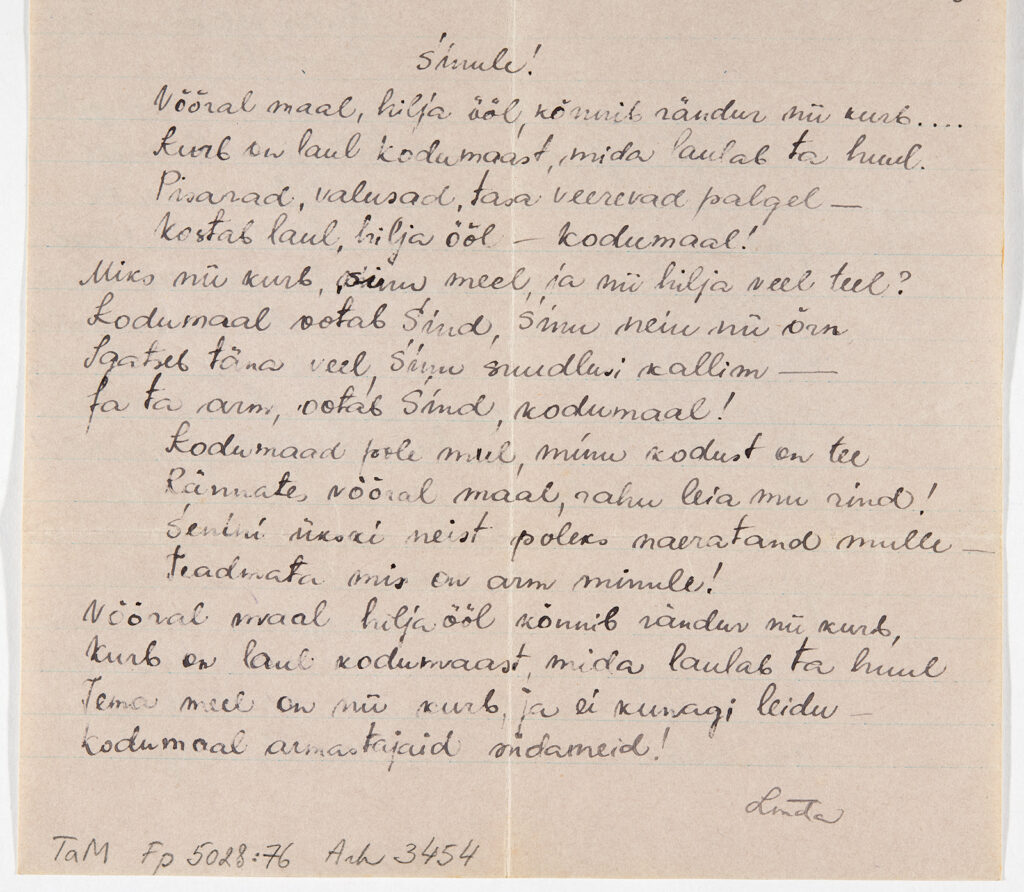 Sinule!
Võõral maal, hilja ööl, kõnnib rändur nii kurb....
Kurb on laul kodumaast, mida laulab ta huul.
Pisarad, valusad, tasa veerevad palgel —
Kostab laul, hilja ööl — kodumaal!
Miks nii kurb, sinu meel, ja nii hilja veel teel?
Kodumaal ootab Sind, Sinu neiu nii õrn
Igatseb täna veel, Sinu suudlusi kallim —
Ja ta arm, ootab Sind, kodumaal!
Kodumaad pole mul, minu kodust on tee
Rännates, võõral maal, rahu leia mu rind!
Senini ükski neist poleks naeratand mulle —
Teadmata mis on arm minule!
Võõral maal hilja ööl kõnnib rändur nii kurb,
Kurb on laul kodumaast, mida laulab ta huul
Tema meel on nii kurb, ja ei kunagi leidu —
Kodumaal armastajaid südameid!
TaM Fp 5028:76 Arh 3454